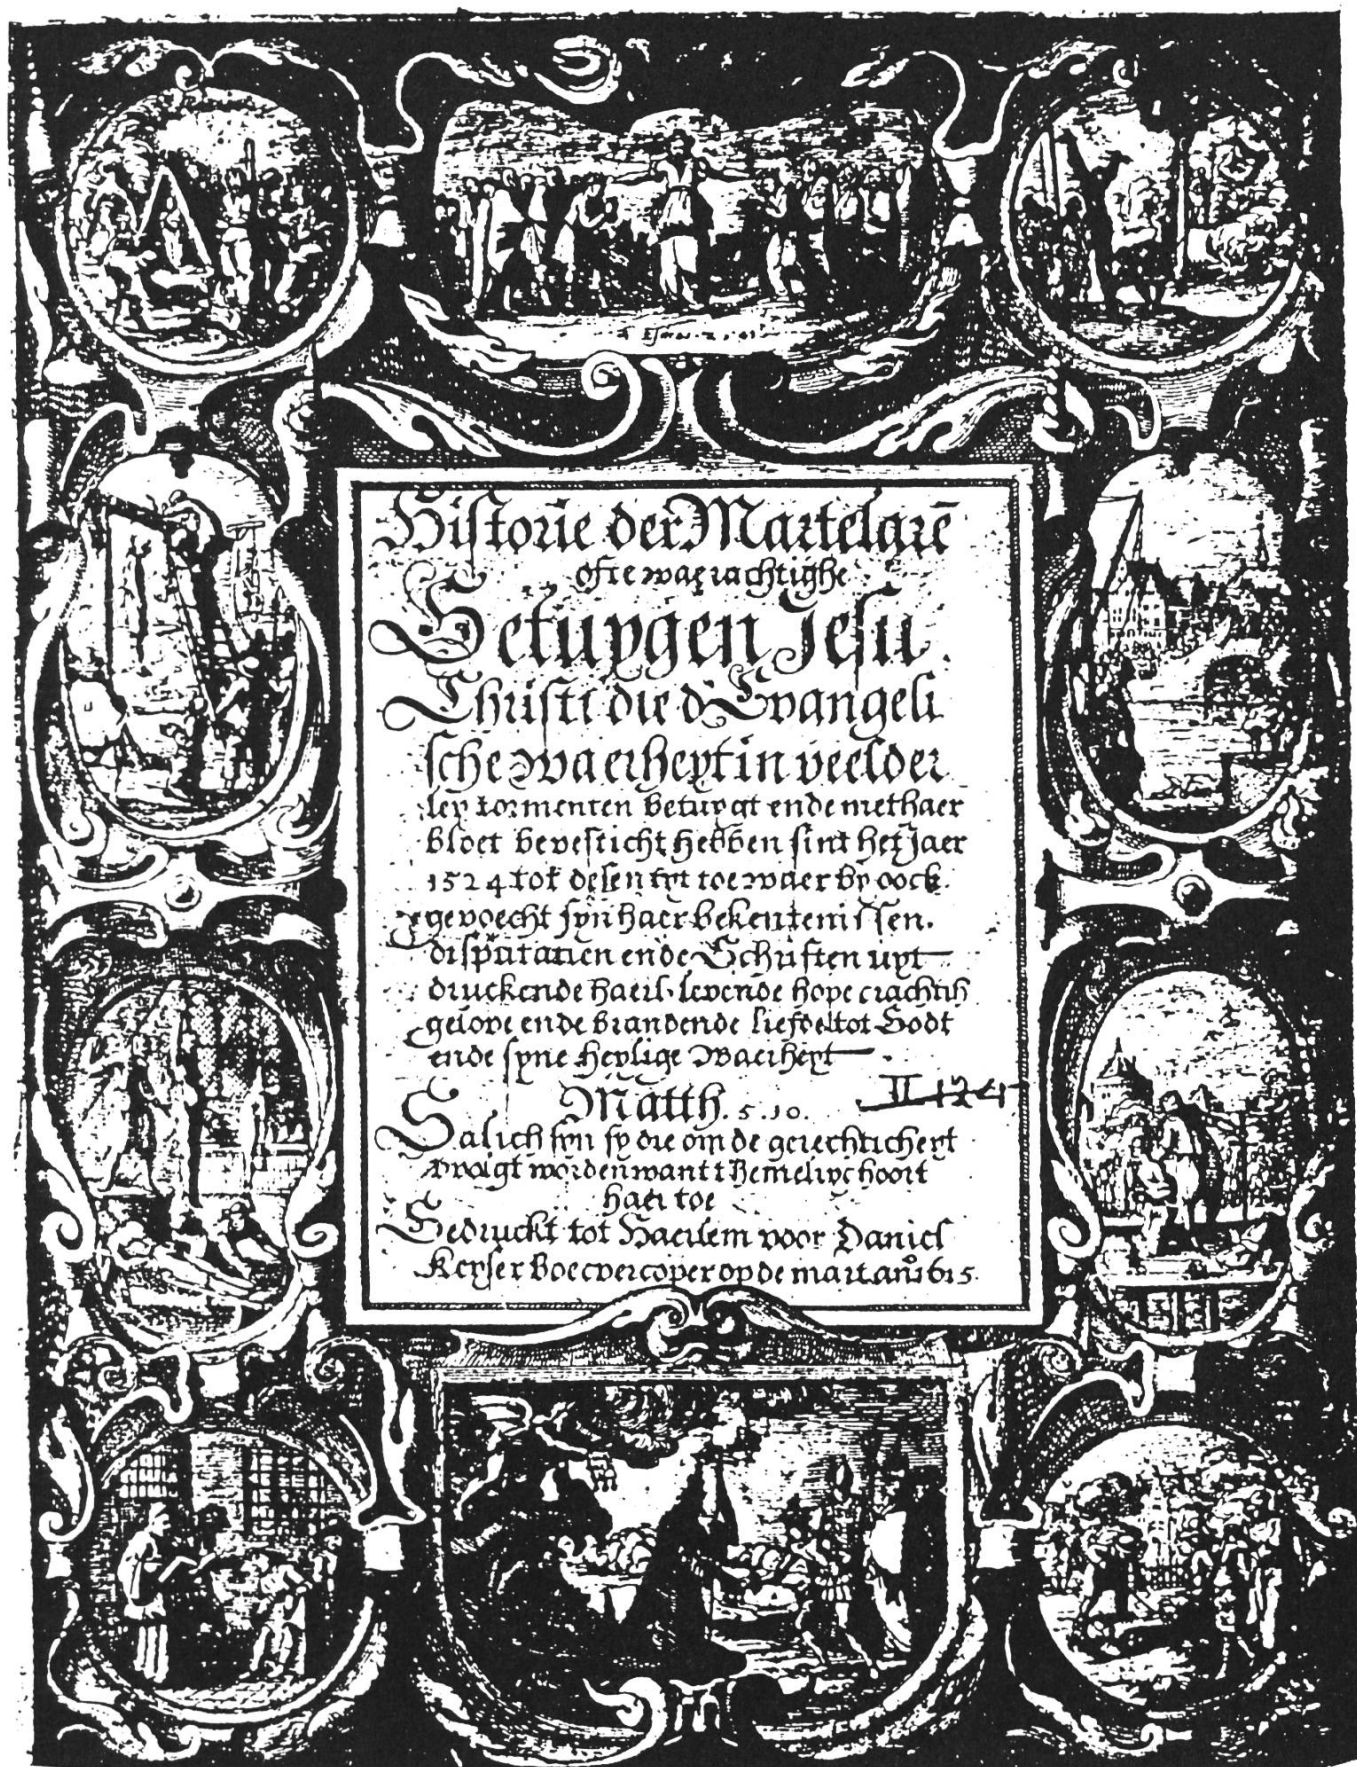 Historie der Martelarē
ofte waerachtighe
Getuygen Jesu
Christi die d'Evangeli
sche waerheyt in veelder
ley tormenten betuygt ende met haer
bloet bevesticht hebben sint het Jaer
1524 tot desen tyt toe waer by oock
gevoecht syn haer bekentenissen.
disputatien ende Schriften uyt
druckende haer levende hope crachtih
gelove ende brandende liefde tot Godt
ende syne heylige waerheyt
II 124
Matth. 5. 10.
Salich syn sy die om de gerechticheyt
vvolgt worden want t hemelryc hoort
haer toe
Gedruckt tot Haerlem voor Daniel
Keyser Boecvercoper op de mart anº 1615